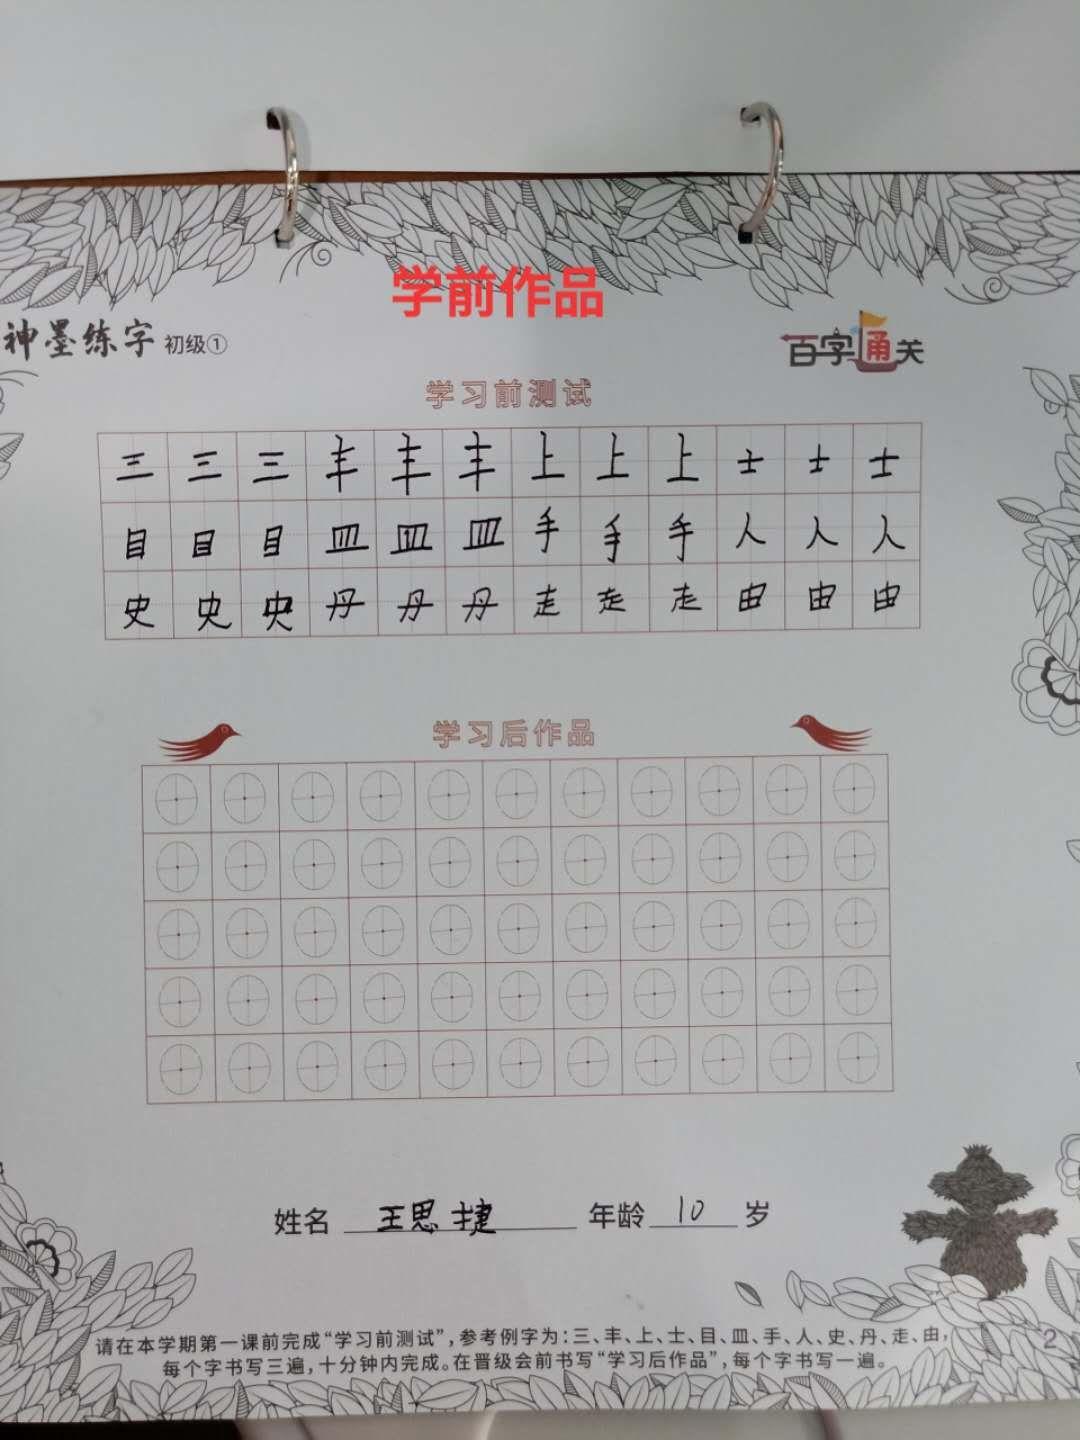 学前作品
神墨练字 初级①
百字通关
学习前测试
三三三丰丰丰上上上士士士
目目目皿皿皿手手手人人人
史史史丹丹丹走走走由由由
学习后作品
姓名 王思捷 年龄 10 岁
请在本学期第一课前完成“学习前测试”,参考例字为:三、丰、上、士、目、皿、手、人、史、丹、走、由,
每个字书写三遍,十分钟内完成。在晋级会前书写“学习后作品”,每个字书写一遍。
2